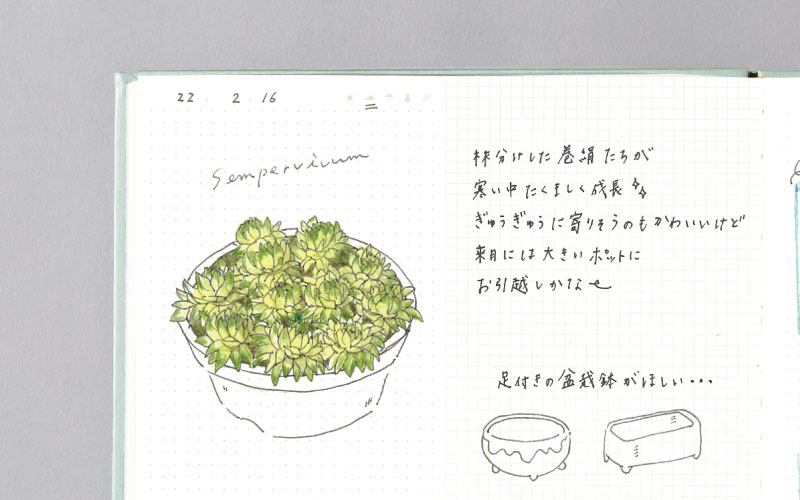 22. 2. 16
Sempervivum
株分けした巻絹たちが
寒い中たくましく成長
ぎゅうぎゅうに寄りそうのもかわいいけど
来月には大きいポットに
お引越しかなー
足付きの盆栽鉢がほしい...